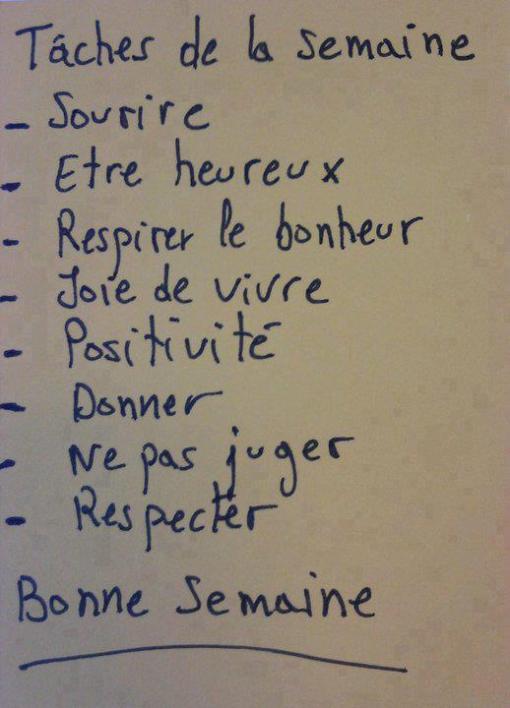 Tâches de la semaine
- Sourire
- Etre heureux
- Respirer le bonheur
- Joie de vivre
- Positivité
- Donner
- Ne pas juger
- Respecter
Bonne Semaine